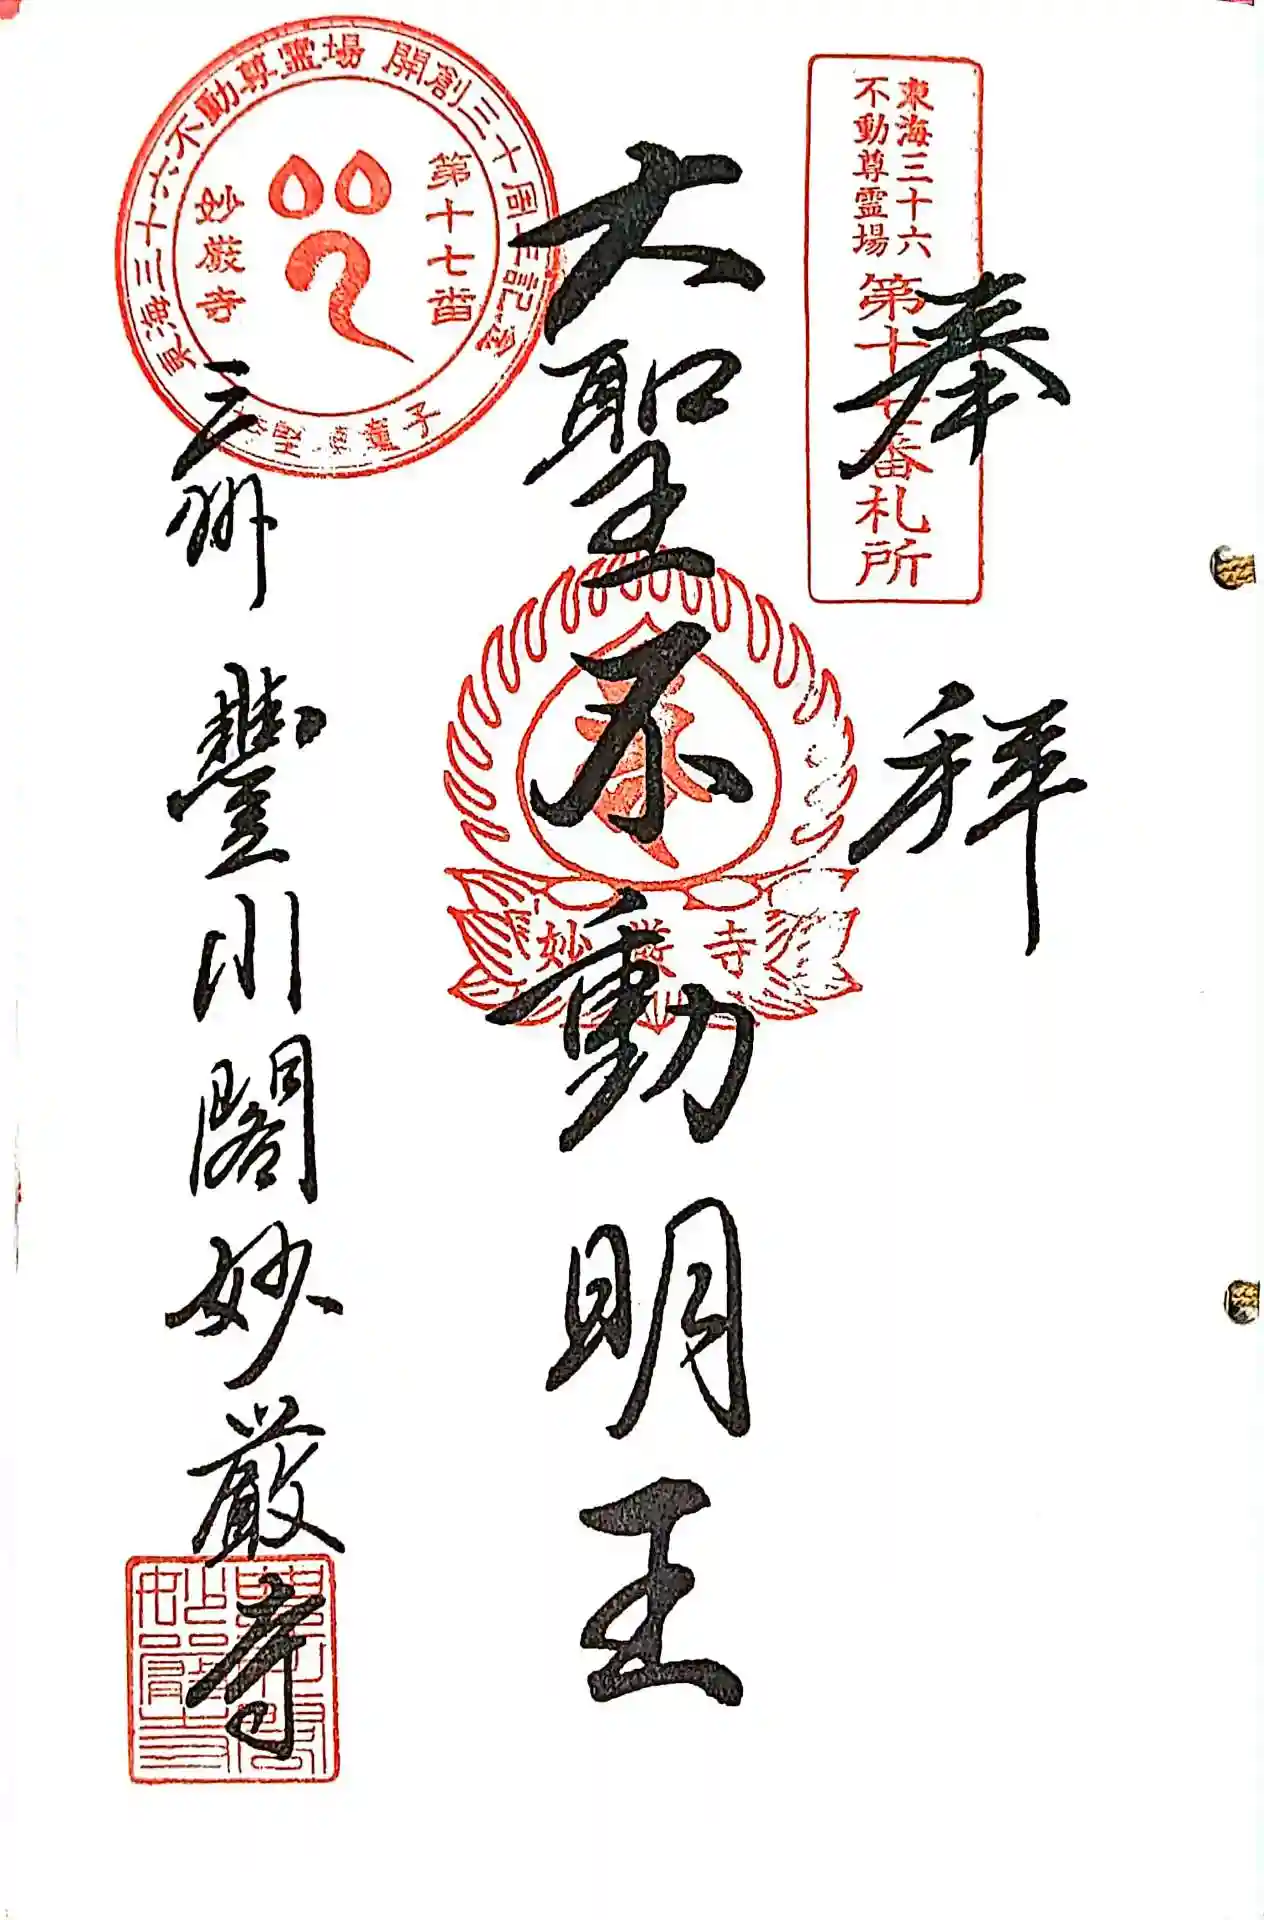 東海三十六
不動尊霊場
第十七番札所
奉拝
大聖不動明王
妙厳寺
東海三十六不動尊霊場 開創三十周年記念
第十七番
妙厳寺
童子
三州 豊川閣妙厳寺